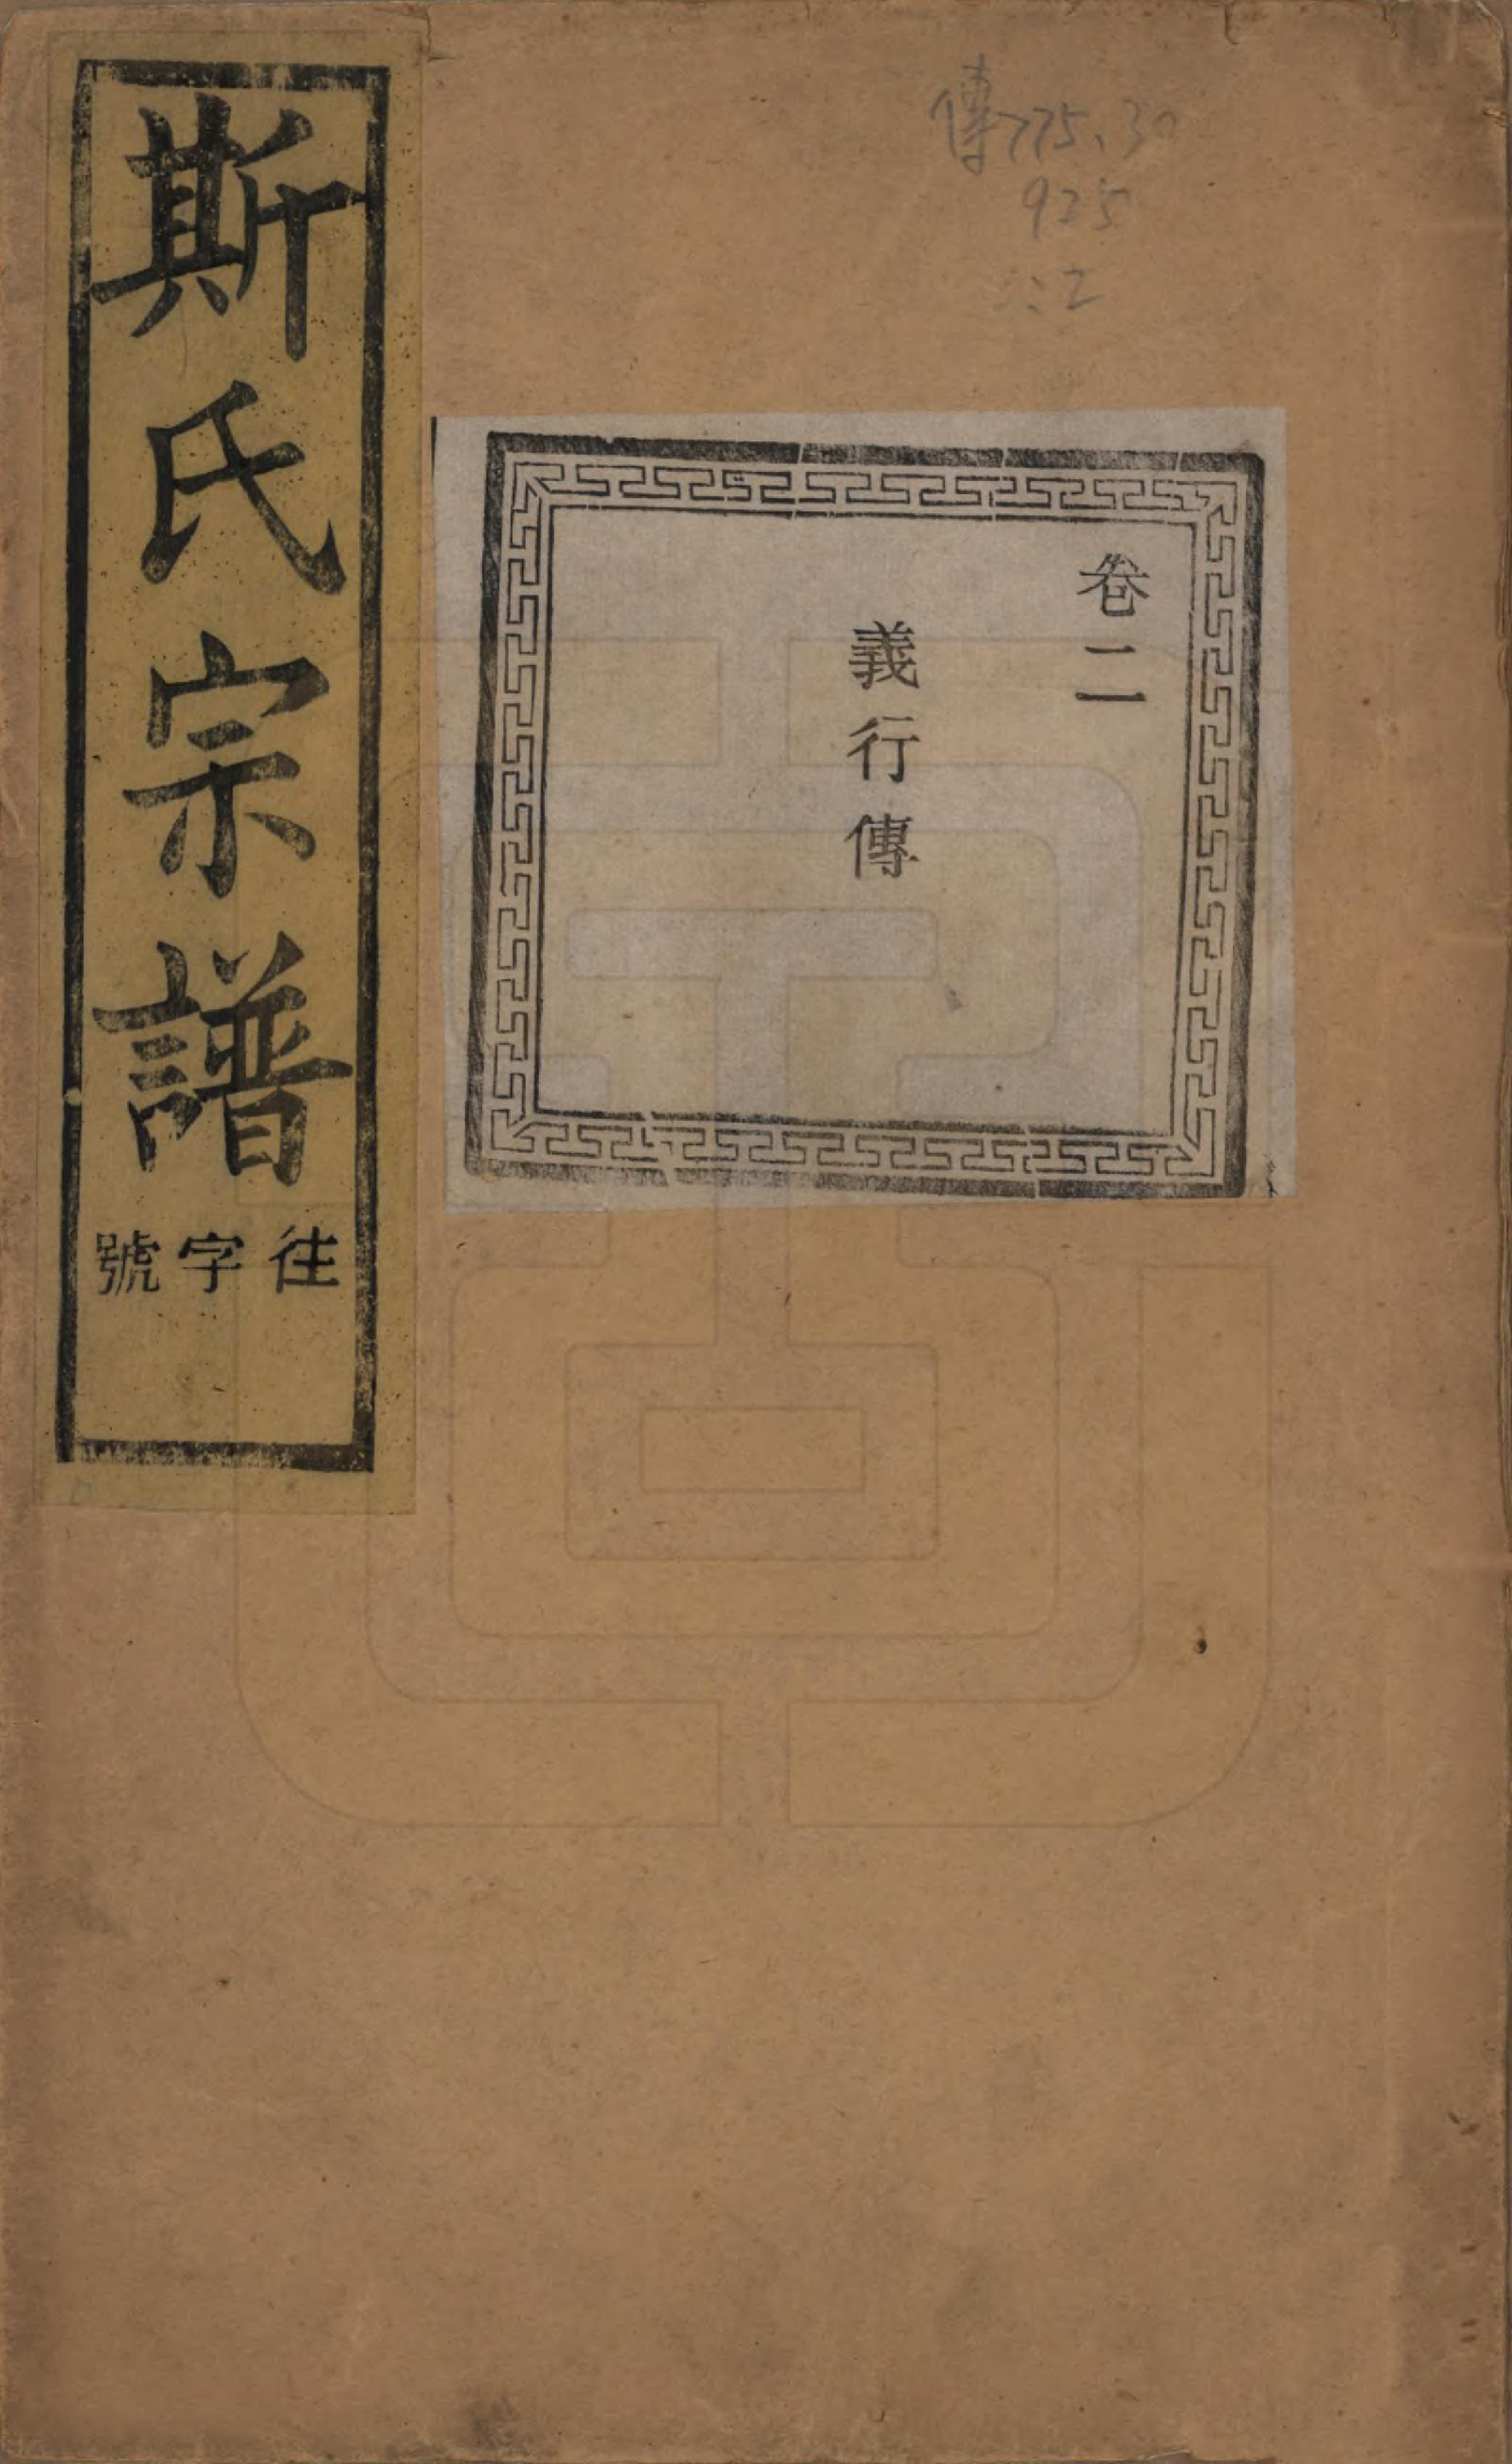 斯氏宗譜
往字號
卷二
義行傳
傳775.30
925
:2